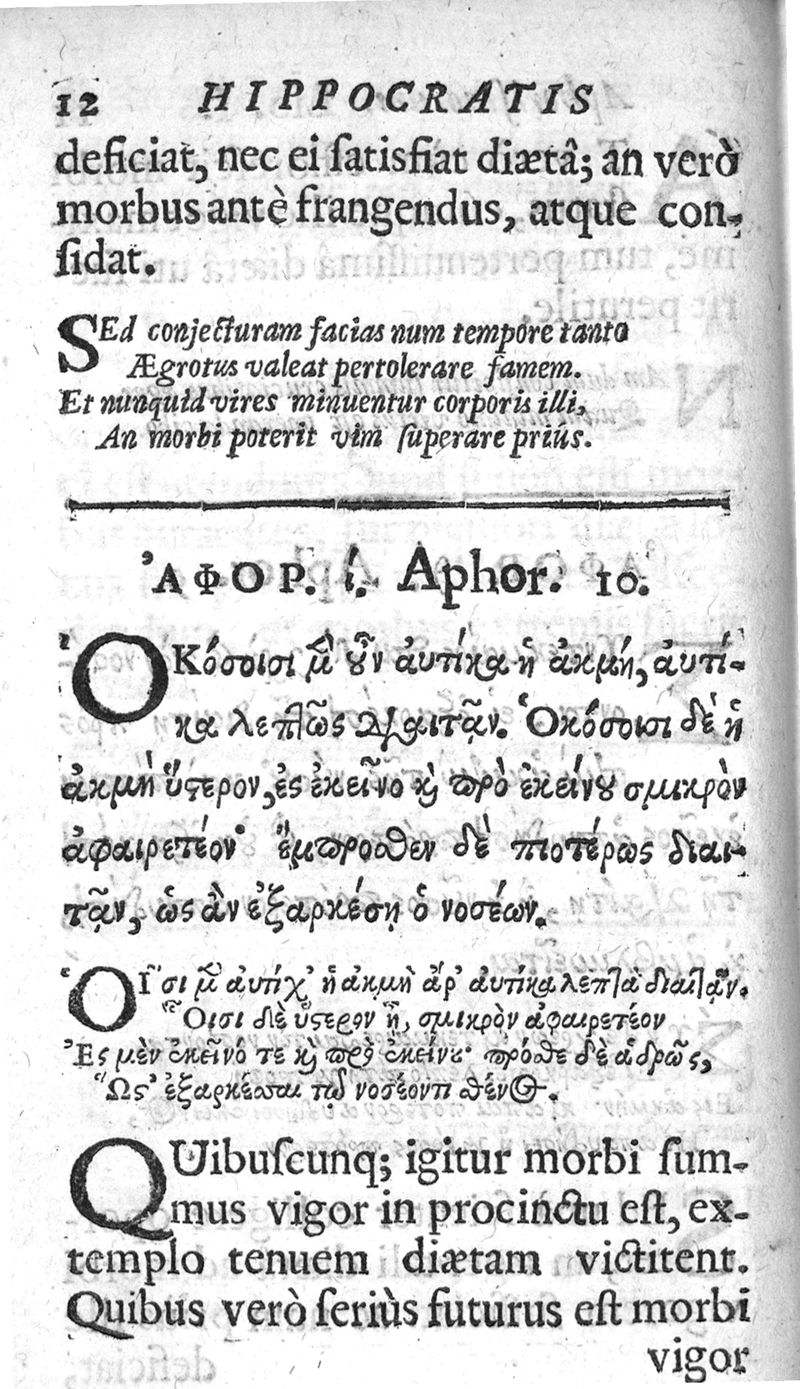 12 HIPPOCRATIS
deficiat, nec ei ſatisfiat diætâ; an verò
morbus antè frangendus, atque con-
ſidat.
SEd conjecturam facias num tempore tanto
Ægrotus valeat pertolerare famem.
Et nunquid vires minuentur corporis illi,
An morbi poterit vim ſuperare priús.
ἈΦΟΡ. ί. Aphor. 10.
ὉΚόσοισι μὲν ȣ̓͂ν ἀυτίκα ἡ ἀκμή, ἀυτί-
κα λεπτῶς διαιτᾷν. Ὁκόσοισι δὲ ἡ
ἀκμὴ ὕϛερον, ἐς ἐκεῖνο ϗ̀ ϖρὸ ἐκείνȣ σμικρὸν
ἀφαιρετέον· ἔμϖροσθεν δὲ πιοτέρως διαι-
τᾷν, ὡς ἂν ἐξαρκέσῃ ὁ νοσέων.
ὉΓσι μὲν ἀυτίχ' ἡ ἀκμὴ ἄρ' ἀυτίκα λεπτὰ διαιτᾷν.
Οἷσι δὲ ὕϛερον ᾖ, σμικρὸν ἀφαιρετέον
Ἐς μὲν ἐκεῖνό τε ϗ̀ ϖρὸ ἐκείνȣ· πρόσθε δὲ ἁδρῶς,
Ὥς' ἐξαρκέσαι τῷ νοσέοντι σθένος.
QUibuſcunq; igitur morbi ſum-
mus vigor in procinctu eſt, ex-
templo tenuem diætam victitent.
Quibus verò ſeriùs futurus eſt morbi
vigor